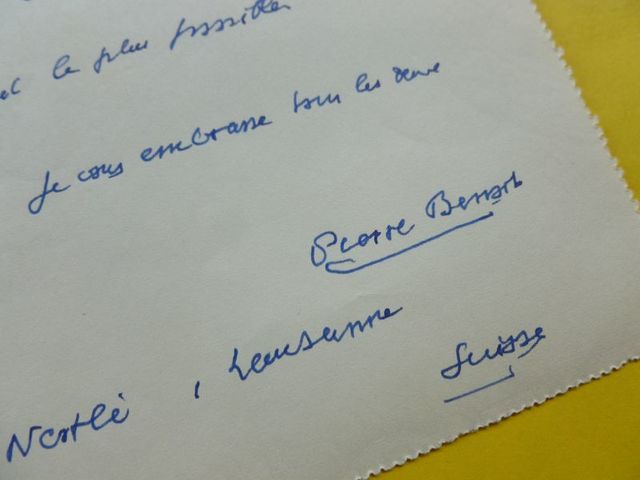 le plus possible
Je vous embrasse tous les deux
Pierre Benoit
Nestlé, Lausanne
Suisse